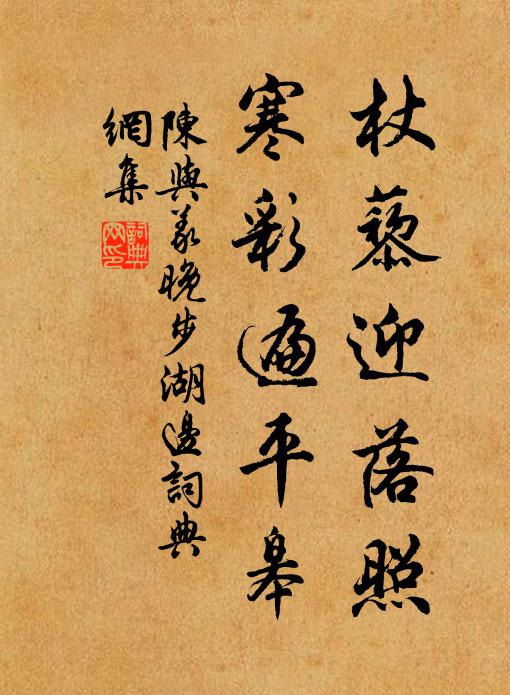 杖藜迎落照
寒彩遍平皋
陳與義晚步湖邊詞典
網集
詞典
网印